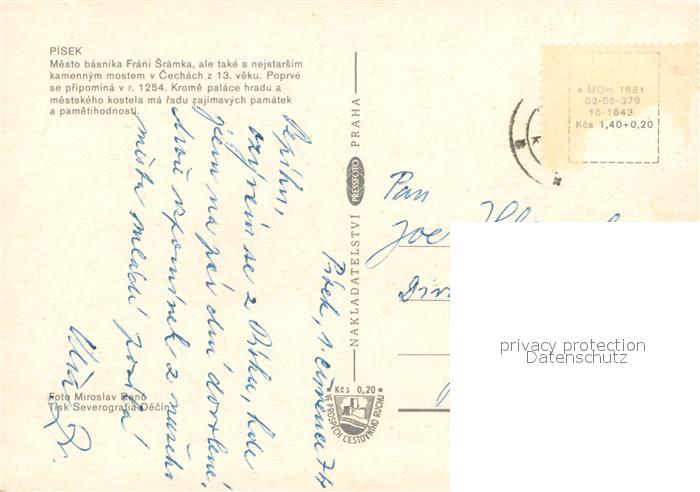 PÍSEK
Město básníka Fráni Šrámka, ale také s nejstarším
kamenným mostem v Čechách z 13. věku. Poprvé
se připomíná v r. 1254. Kromě paláce hradu a
městského kostela má řadu zajímavých památek
a pamětihodností.
Pepíku,
ozývám se z Písku, kde
jsem na pár dní dovolené,
moře vzpomínek z našeho
města mládí posílá
Písek, 1. července 74
Foto Miroslav Raně
Tisk Severografia Děčín
NAKLADATELSTVÍ PRESSFOTO PRAHA
Kčs 0,20
VE PROSPĚCH CESTOVNÍHO RUCHU
MOm 1661
02-05-379
16-1643
Kčs 1,40+0,20
Pan
Joe
privacy protection
Datenschutz